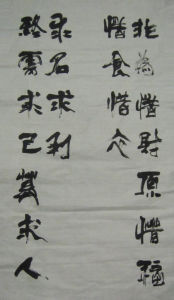 惜食惜衣
非為惜財原惜福
求名求利
終須求己莫求人